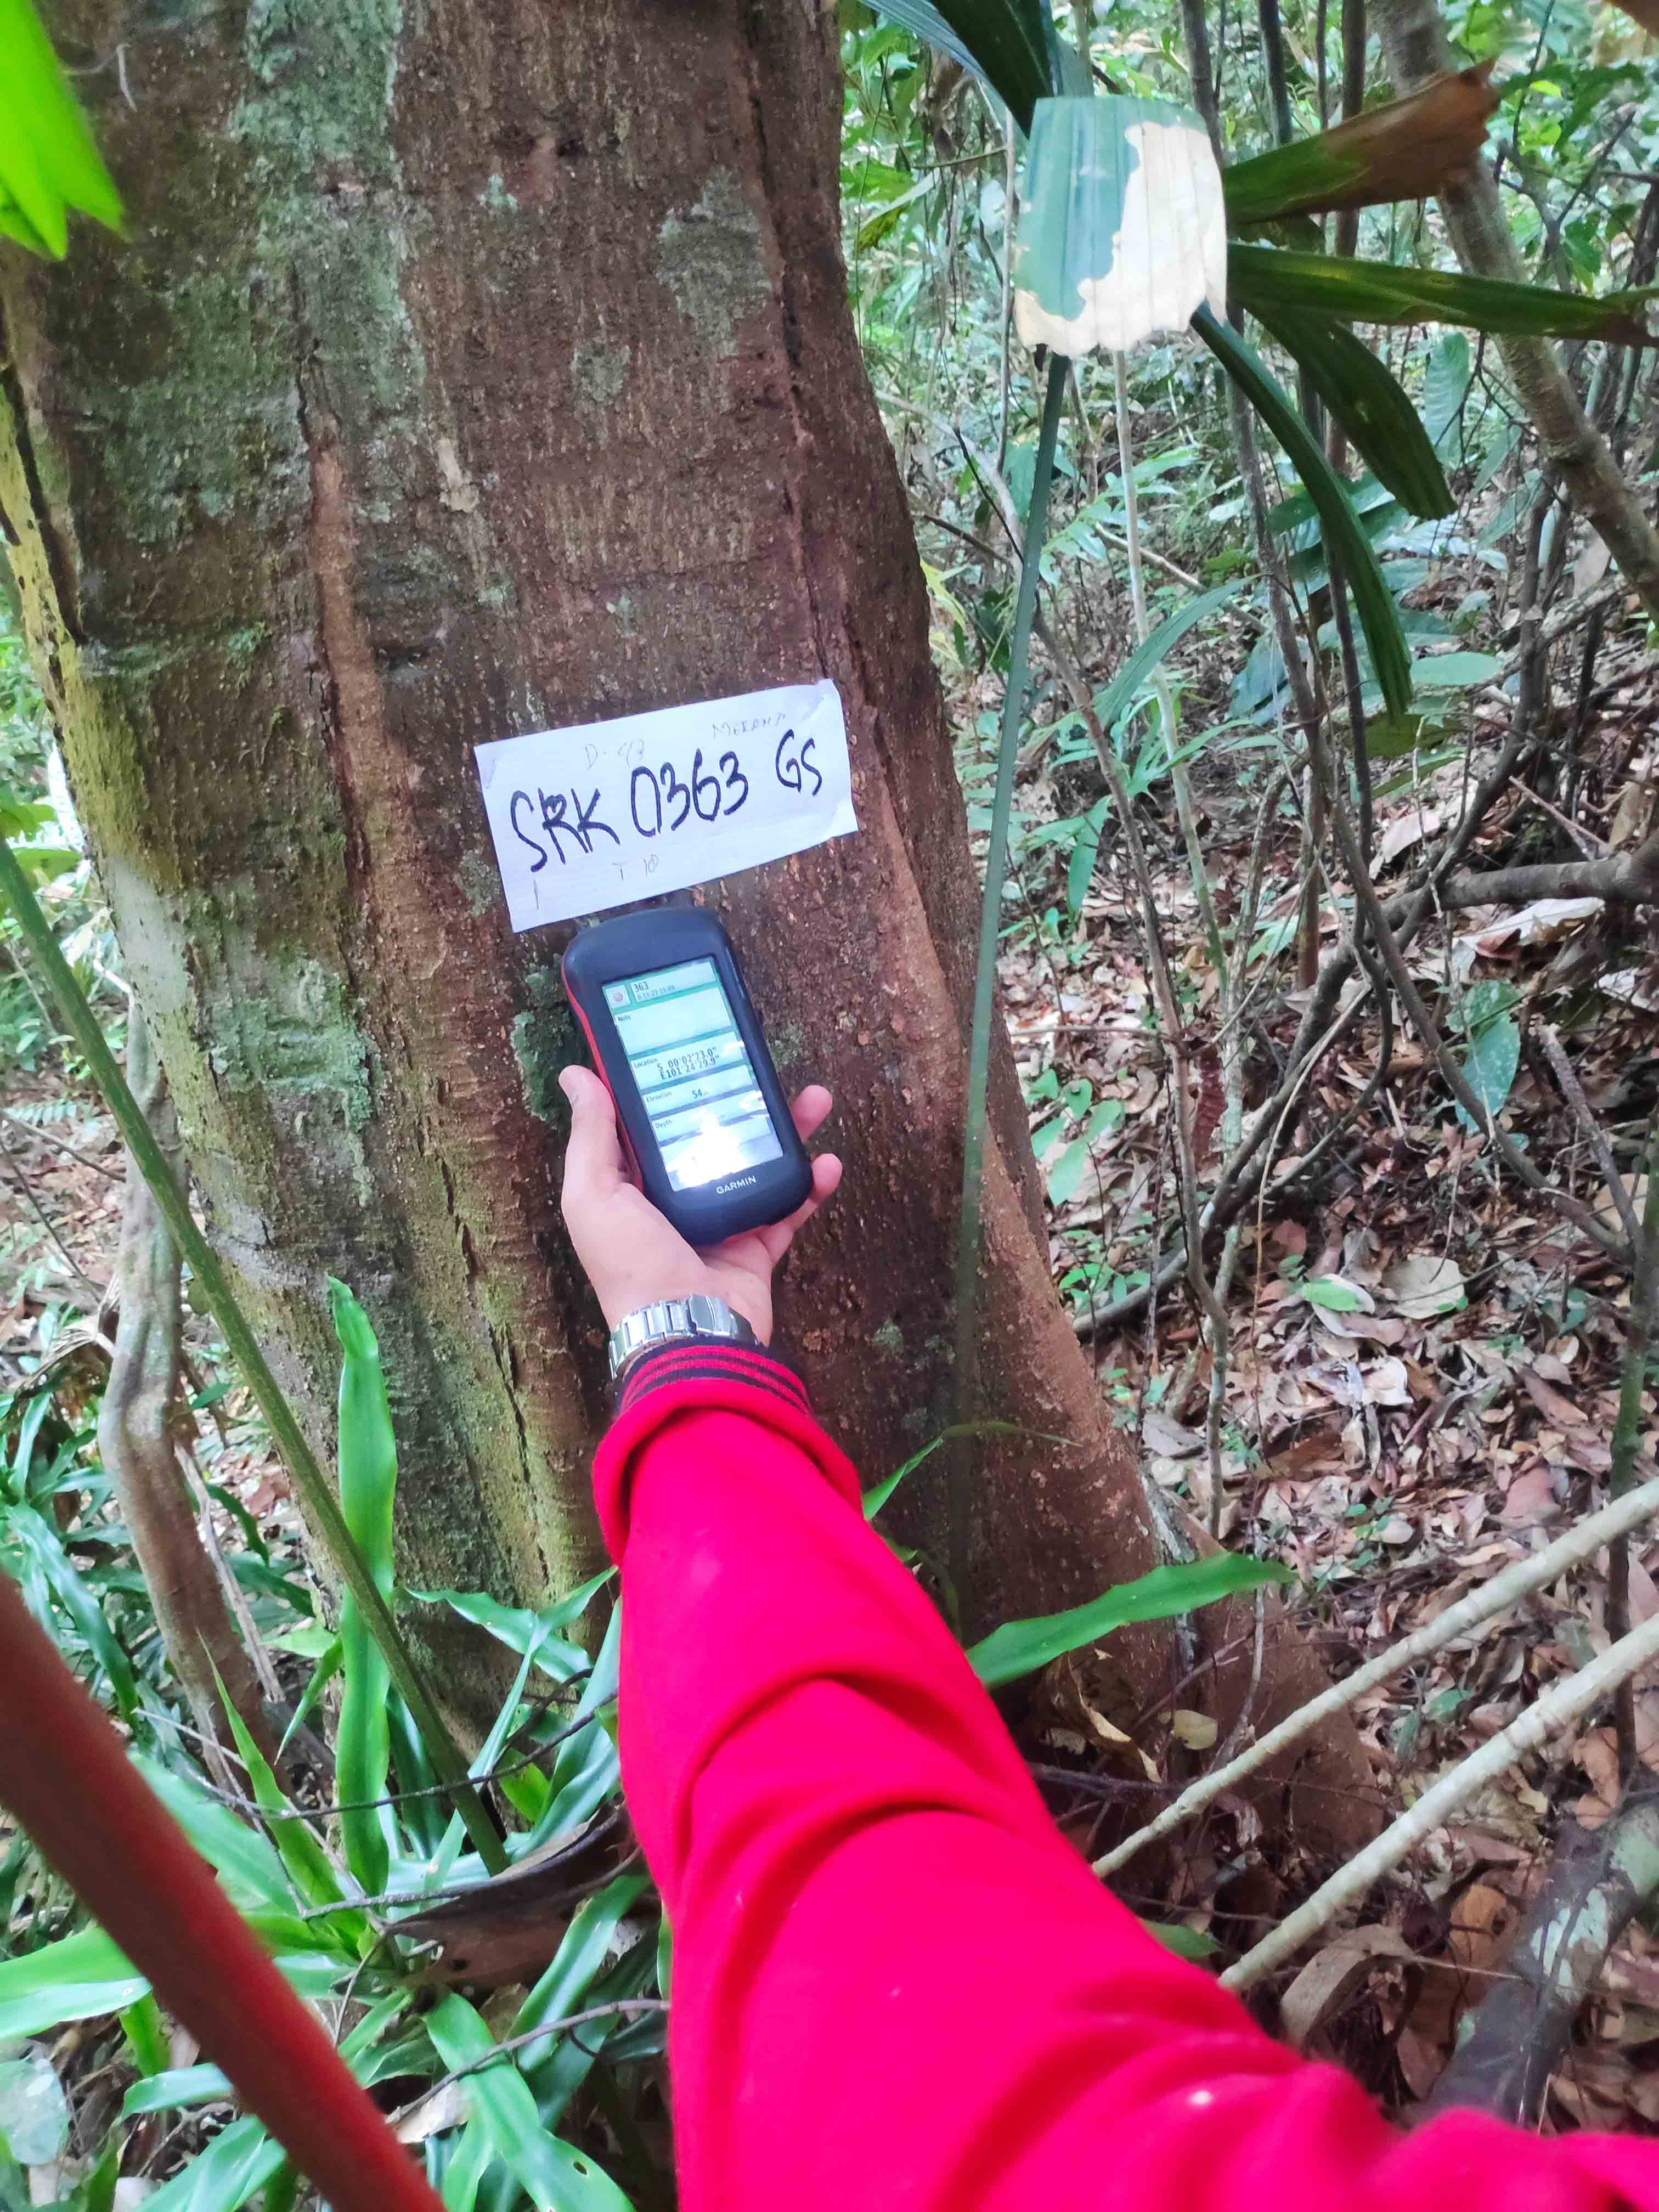 MERANTI
SRK 0363 GS
T 10
363
Note
Location
S 00°02'23.0"
E101°24'29.9"
Elevation
54 m
Depth
GARMIN